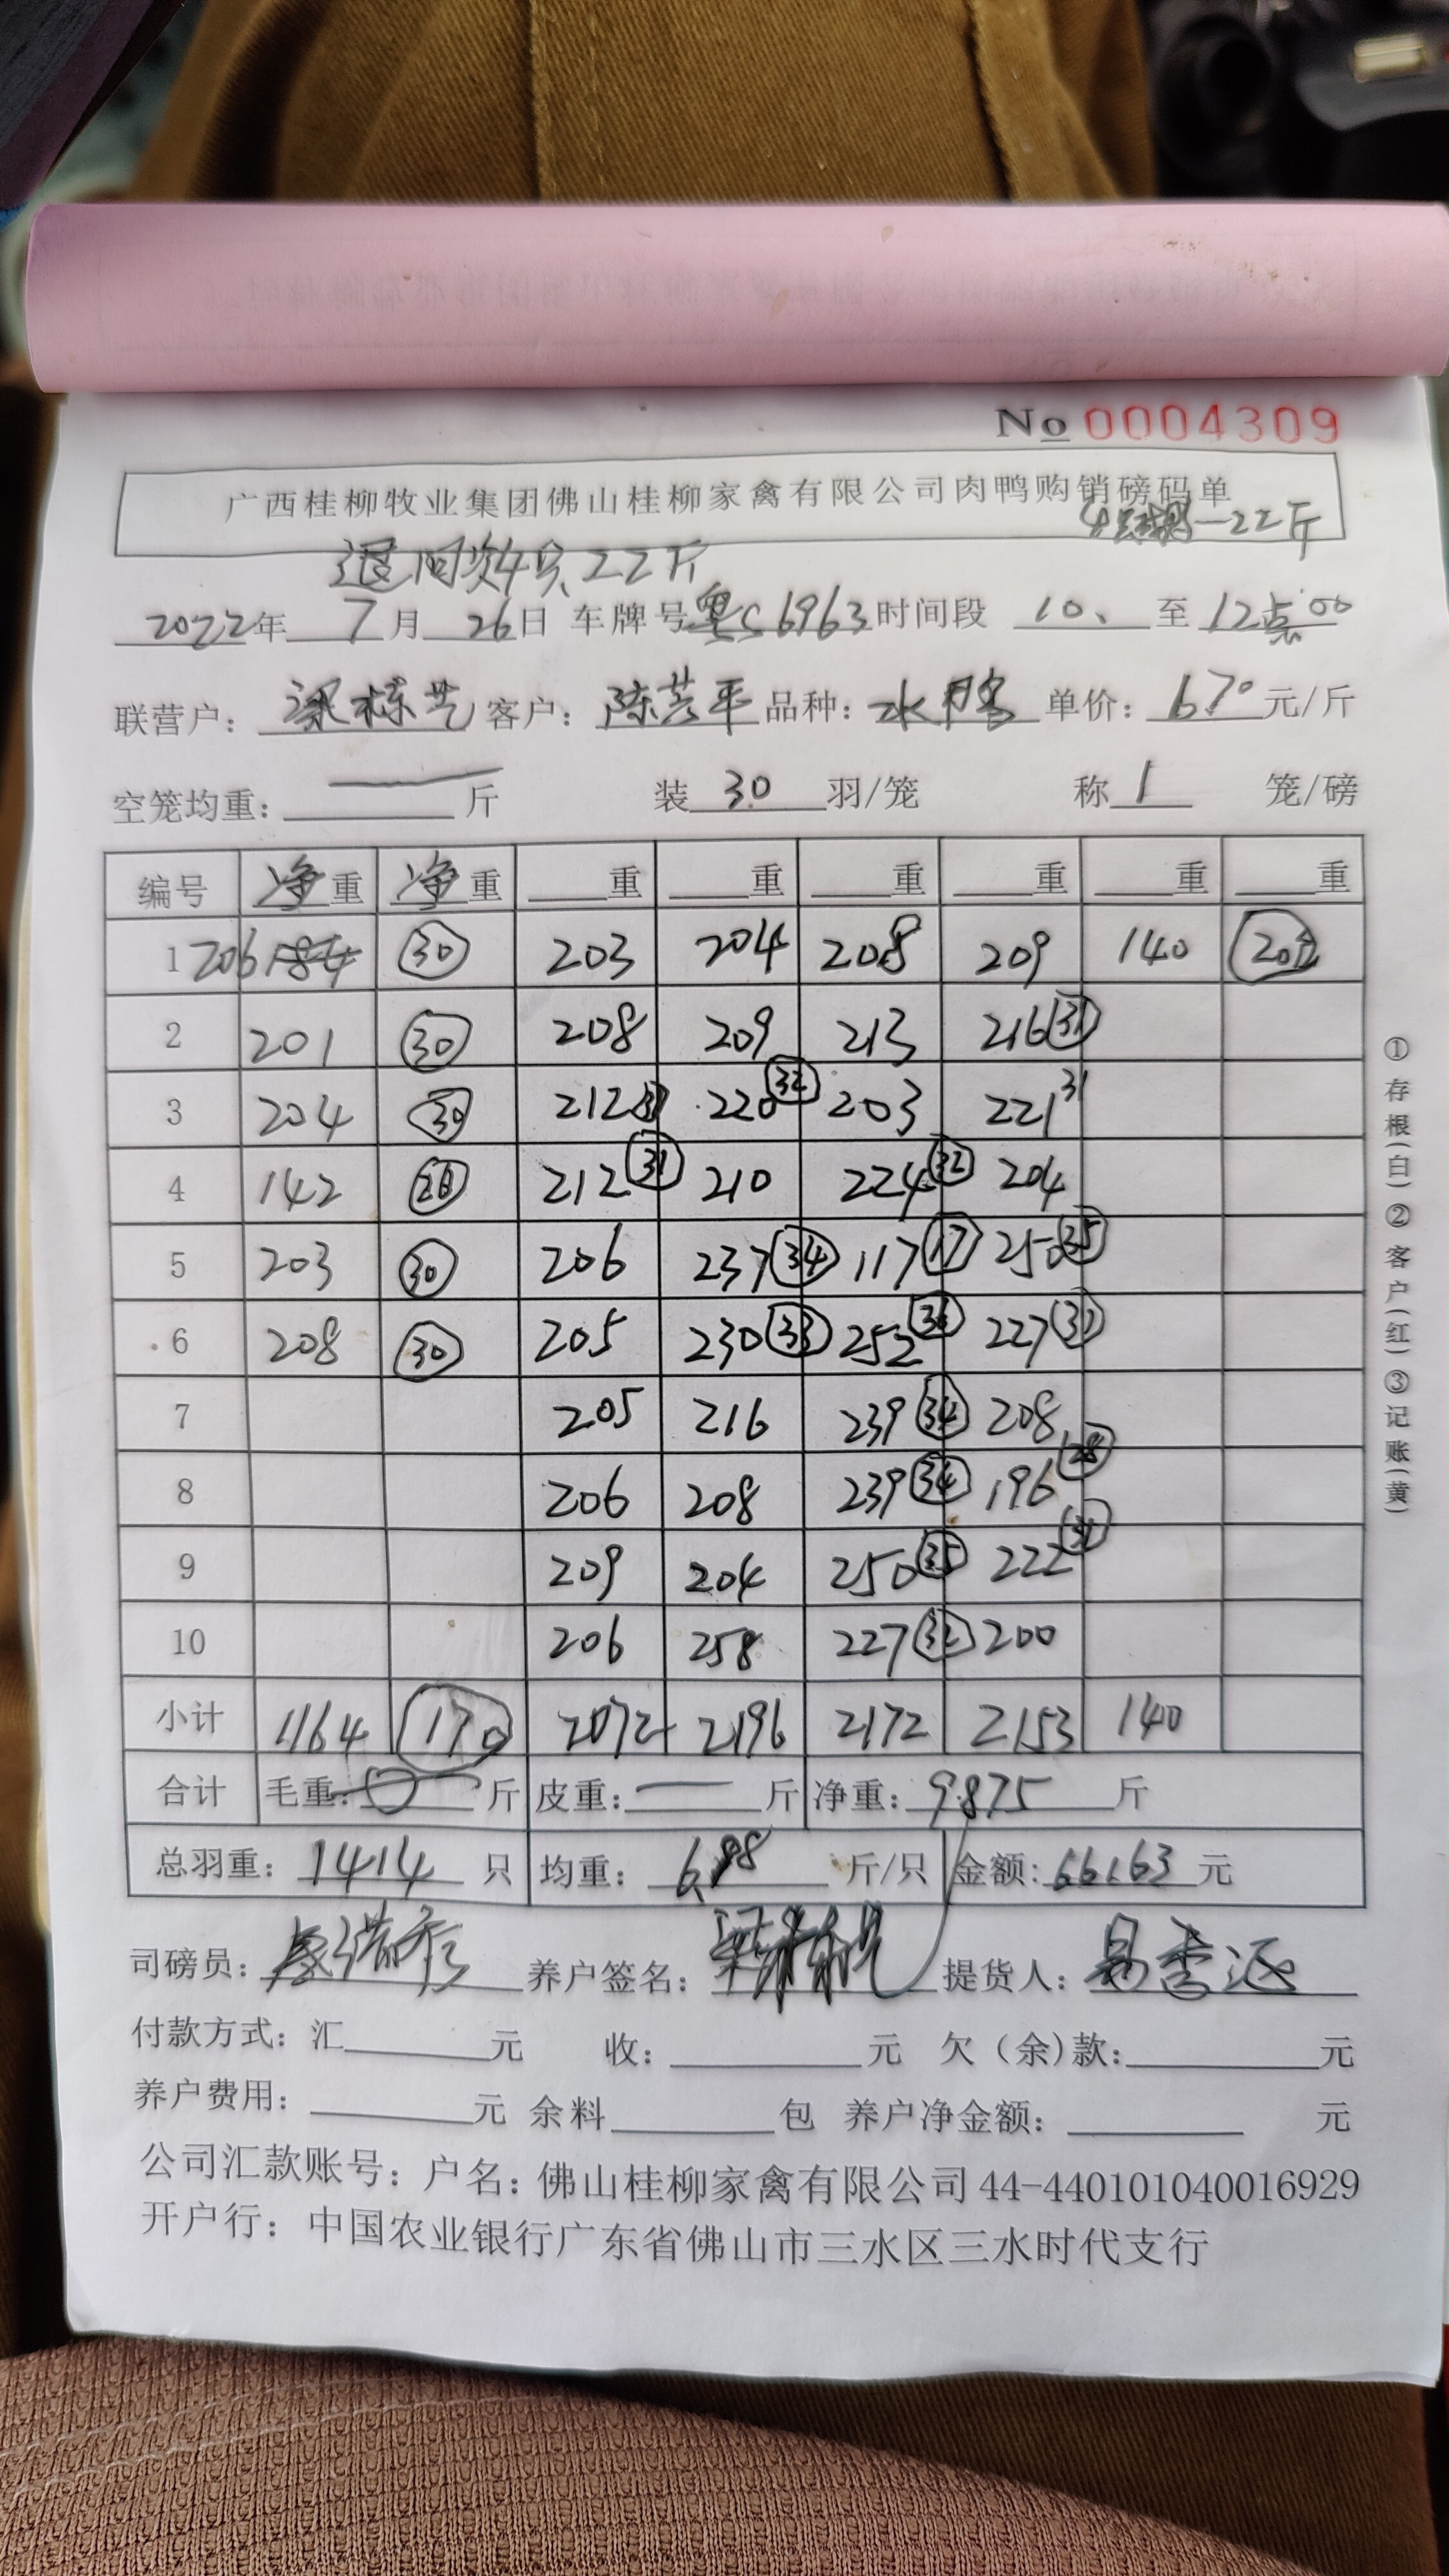 No 0004309
广西桂柳牧业集团佛山桂柳家禽有限公司肉鸭购销磅码单
一22斤
退回次4只22斤
2022年 7月 26日 车牌号 粤S6963 时间段 10、 至 12点00
联营户： 梁栋艺 客户： 陈芸平 品种： 水鸭 单价： 6.70 元/斤
空笼均重： — 斤 装 30 羽/笼 称 1 笼/磅
编号 净重 净重 重 重 重 重 重 重
1 206 184 30 203 204 208 209 140
2 201 30 208 209 213 216 31
3 204 30 212 31 220 32 203 221 31
4 142 20 212 31 210 224 32 204
5 203 30 206 237 34 117 17 250 35
6 208 30 205 230 33 252 36 227
7 205 216 239 34 208
8 206 208 239 34 196 28
9 209 204 250 35 222
10 206 258 227 32 200
小计 1164 170 2072 2196 2172 2153 140
合计 毛重： 0 斤 皮重： — 斤 净重： 9875 斤
总羽重： 1414 只 均重： 6.98 斤/只 金额： 66163 元
司磅员： 养户签名： 提货人：
付款方式：汇 元 收： 元 欠（余)款： 元
养户费用： 元 余料 包 养户净金额： 元
公司汇款账号：户名：佛山桂柳家禽有限公司 44-440101040016929
开户行：中国农业银行广东省佛山市三水区三水时代支行
①存根(白)②客户(红)③记账(黄)